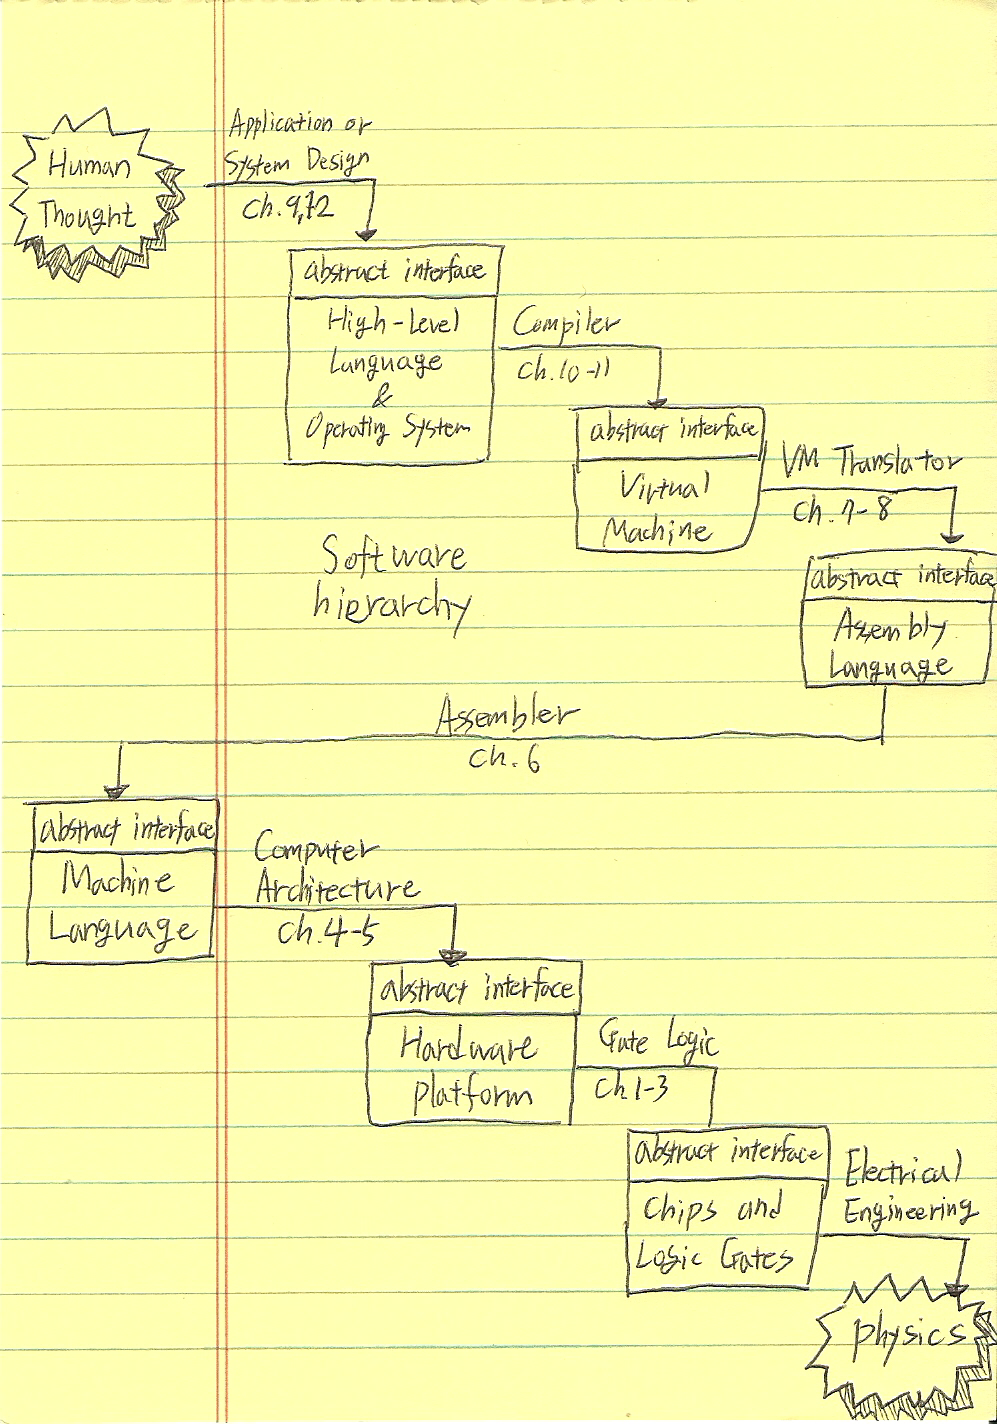 Human
Thought
Application or
System Design
Ch. 9,12
abstract interface
High-Level
Language
&
Operating System
Compiler
Ch. 10-11
abstract interface
Virtual
Machine
VM Translator
Ch. 7-8
abstract interface
Assembly
Language
Software
hierarchy
Assembler
Ch. 6
abstract interface
Machine
Language
Computer
Architecture
Ch. 4-5
abstract interface
Hardware
platform
Gate Logic
Ch 1-3
abstract interface
Chips and
Logic Gates
Electrical
Engineering
physics